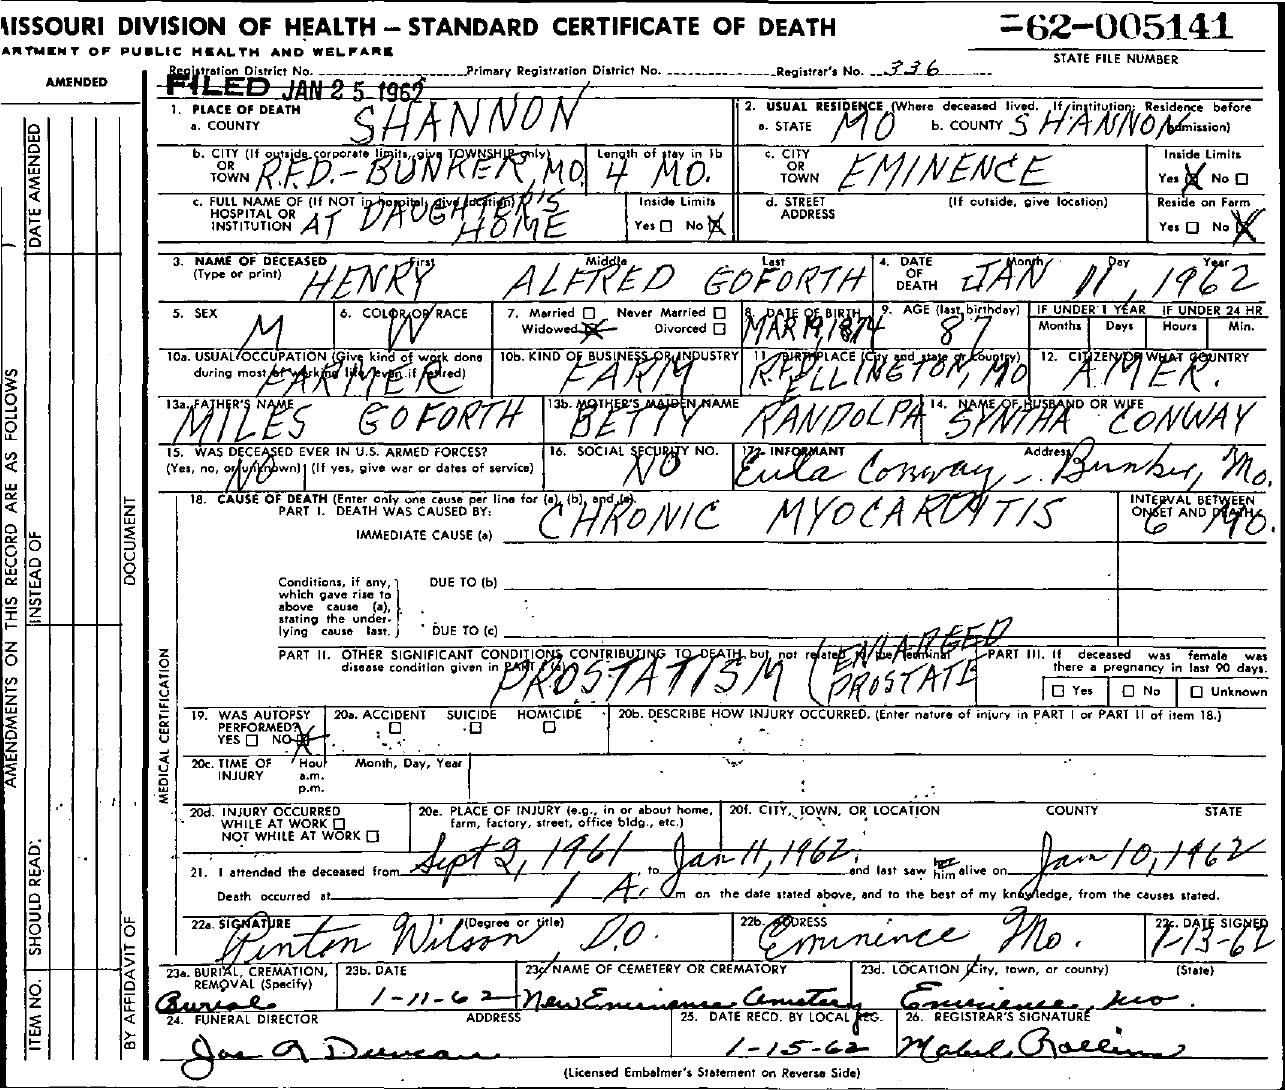 MISSOURI DIVISION OF HEALTH — STANDARD CERTIFICATE OF DEATH
=62-005141
ARTMENT OF PUBLIC HEALTH AND WELFARE
STATE FILE NUMBER
AMENDED
Registration District No. Primary Registration District No. Registrar's No. 336
FILED JAN 25 1962
1. PLACE OF DEATH
a. COUNTY SHANNON
2. USUAL RESIDENCE (Where deceased lived. If institution: Residence before admission)
a. STATE MO b. COUNTY SHANNON
b. CITY (If outside corporate limits, give TOWNSHIP only)
OR
TOWN R.F.D. - BUNKER, MO.
Length of stay in 1b
4 MO.
c. CITY
OR
TOWN EMINENCE
Inside Limits
Yes X No
c. FULL NAME OF (If NOT in hospital, give location)
HOSPITAL OR
INSTITUTION AT DAUGHTER'S
HOME
Inside Limits
Yes No X
d. STREET
ADDRESS
(If outside, give location)
Reside on Farm
Yes No X
3. NAME OF DECEASED
(Type or print)
First Middle Last
HENRY ALFRED GOFORTH
4. DATE
OF
DEATH
Month Day Year
JAN 11, 1962
5. SEX
M
6. COLOR OR RACE
W
7. Married Never Married
Widowed X Divorced
8. DATE OF BIRTH
MAR 19, 1874
9. AGE (last birthday)
87
IF UNDER 1 YEAR IF UNDER 24 HR
Months Days Hours Min.
10a. USUAL OCCUPATION (Give kind of work done
during most of working life, even if retired)
FARMER
10b. KIND OF BUSINESS OR INDUSTRY
FARM
11. BIRTHPLACE (City and state or country)
R.F.D.
ELLINGTON, MO
12. CITIZEN OF WHAT COUNTRY
AMER.
13a. FATHER'S NAME
MILES GOFORTH
13b. MOTHER'S MAIDEN NAME
BETTY RANDOLPH
14. NAME OF HUSBAND OR WIFE
SYNTHA CONWAY
15. WAS DECEASED EVER IN U.S. ARMED FORCES?
(Yes, no, or unknown) (If yes, give war or dates of service)
NO
16. SOCIAL SECURITY NO.
NO
17. INFORMANT Address
Eula Conway - Bunker, Mo.
18. CAUSE OF DEATH (Enter only one cause per line for (a), (b), and (c).
PART I. DEATH WAS CAUSED BY:
IMMEDIATE CAUSE (a) CHRONIC MYOCARDITIS
INTERVAL BETWEEN
ONSET AND DEATH
6 MO.
Conditions, if any,
which gave rise to
above cause (a),
stating the under-
lying cause last.
DUE TO (b)
DUE TO (c)
PART II. OTHER SIGNIFICANT CONDITIONS CONTRIBUTING TO DEATH but not related to the terminal
disease condition given in PART I (a)
PROSTATISM (ENLARGED
PROSTATE
PART III. If deceased was female was
there a pregnancy in last 90 days.
Yes No Unknown
19. WAS AUTOPSY
PERFORMED?
YES NO X
20a. ACCIDENT SUICIDE HOMICIDE
20b. DESCRIBE HOW INJURY OCCURRED. (Enter nature of injury in PART I or PART II of item 18.)
20c. TIME OF
INJURY
Hour
a.m.
p.m.
Month, Day, Year
20d. INJURY OCCURRED
WHILE AT WORK
NOT WHILE AT WORK
20e. PLACE OF INJURY (e.g., in or about home,
farm, factory, street, office bldg., etc.)
20f. CITY, TOWN, OR LOCATION COUNTY STATE
21. I attended the deceased from Sept 2, 1961 to Jan 11, 1962, and last saw her him alive on Jan 10, 1962
Death occurred at 1 A. m on the date stated above, and to the best of my knowledge, from the causes stated.
22a. SIGNATURE (Degree or title)
Wilson D.O.
22b. ADDRESS
Eminence Mo.
22c. DATE SIGNED
1-13-62
23a. BURIAL, CREMATION,
REMOVAL (Specify)
Burial
23b. DATE
1-11-62
23c. NAME OF CEMETERY OR CREMATORY
New Eminence Cemetery
23d. LOCATION (City, town, or county) (State)
Eminence, Mo.
24. FUNERAL DIRECTOR ADDRESS
Jas R Duncan
25. DATE RECD. BY LOCAL REG.
1-15-62
26. REGISTRAR'S SIGNATURE
Mabel Rollins
(Licensed Embalmer's Statement on Reverse Side)
AMENDMENTS ON THIS RECORD ARE AS FOLLOWS
DATE AMENDED
INSTEAD OF
DOCUMENT
ITEM NO. SHOULD READ:
BY AFFIDAVIT OF
MEDICAL CERTIFICATION